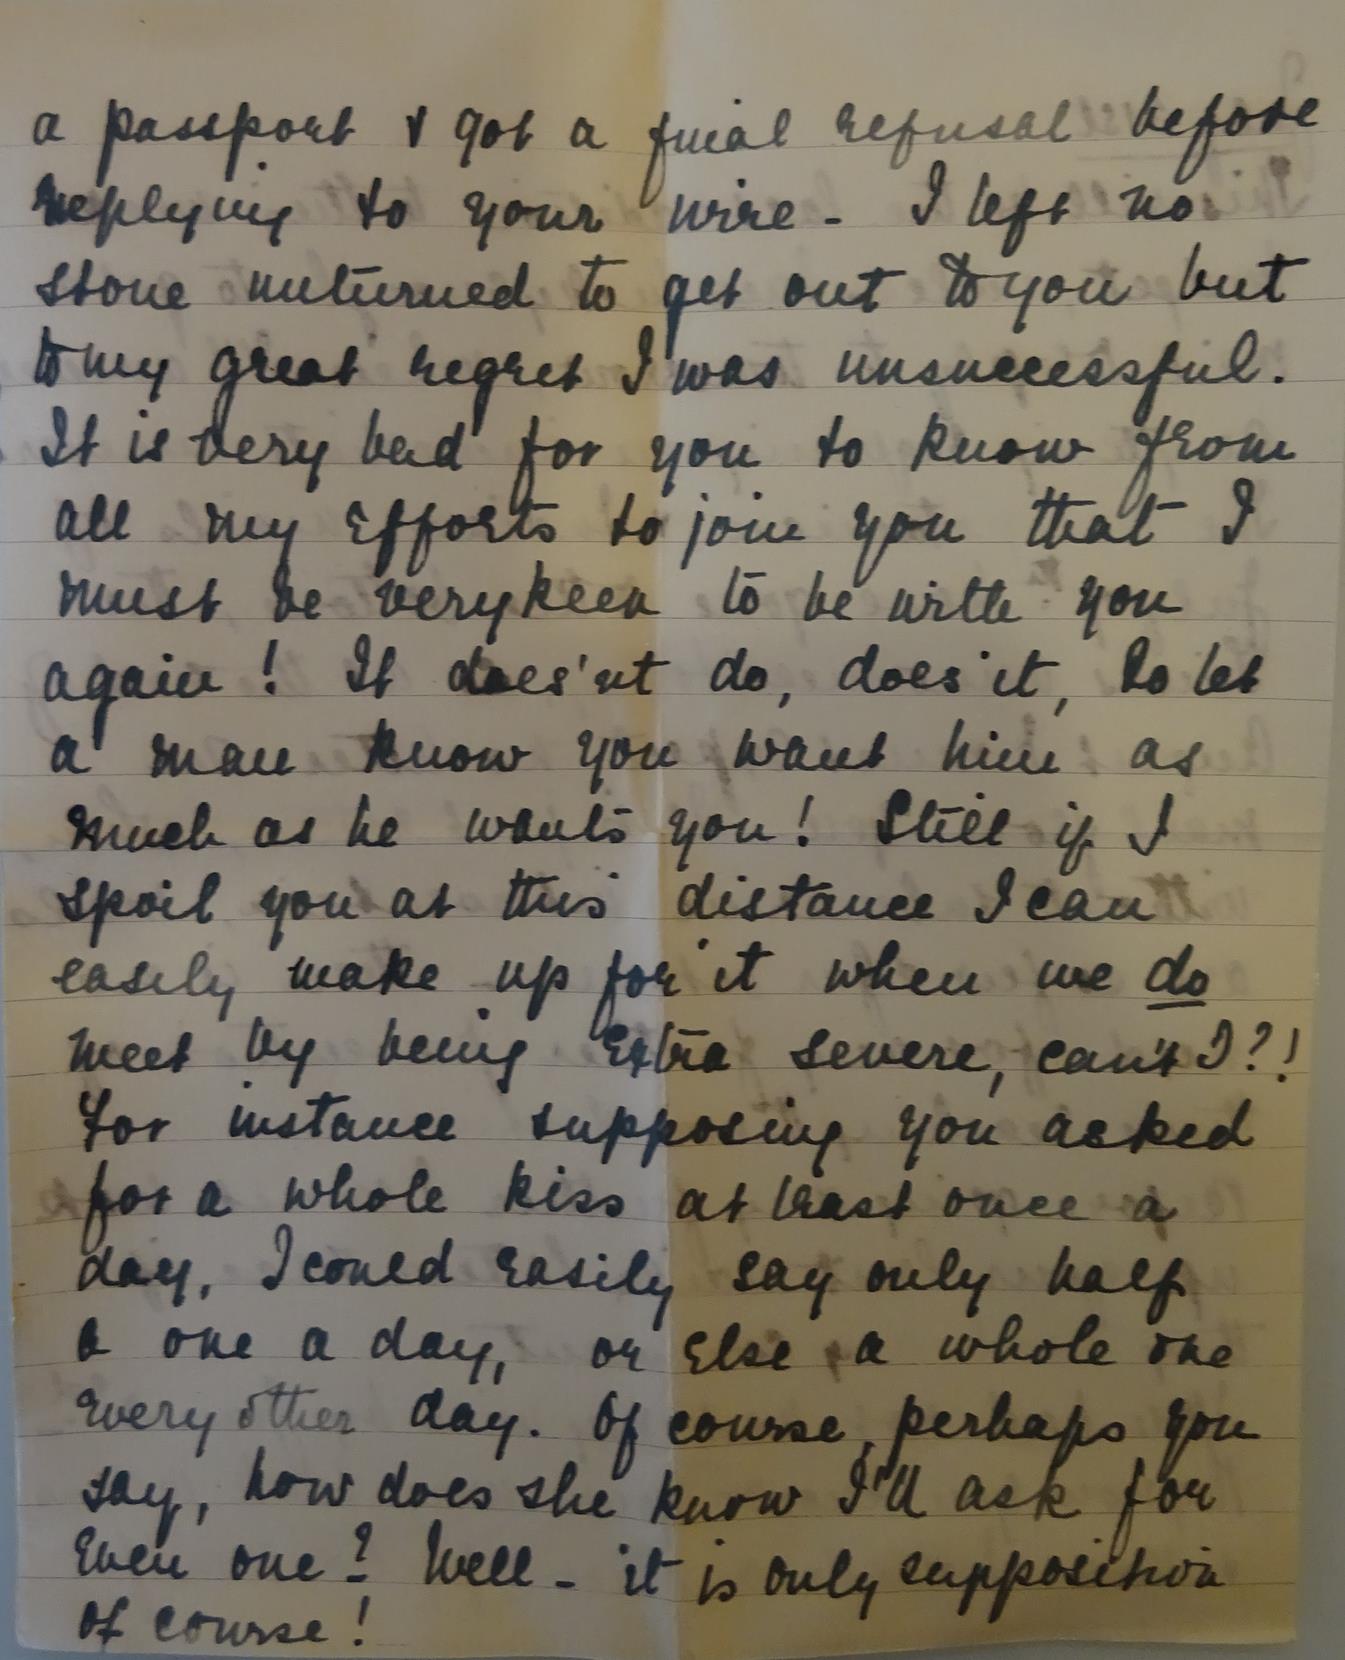 a passport & got a final refusal before
replying to your wire - I left no
stone unturned to get out to you but
to my great regret I was unsuccessful.
It is very bad for you to know from
all my efforts to join you that I
must be very keen to be with you
again! It does'nt do, does it, to let
a man know you want him as
much as he wants you! Still if I
spoil you at this distance I can
easily make up for it when we do
meet by being extra severe, can't I?!
For instance supposing you asked
for a whole kiss at least once a
day, I could easily say only half
a one a day, or else a whole one
every other day. Of course, perhaps you
say, how does she know I'll ask for
even one? Well - it is only supposition
of course!